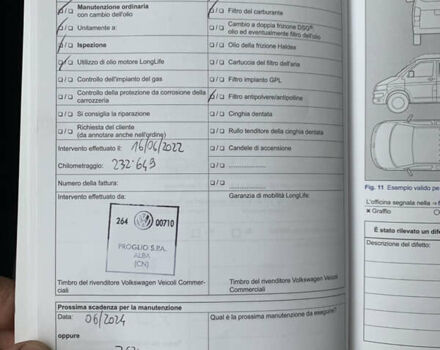 Manutenzione ordinaria
con cambio dell'olio
Unitamente a:
Ispezione
Utilizzo di olio motore LongLife
Controllo dell'impianto del gas
Controllo della protezione da corrosione della
carrozzeria
Si consiglia la riparazione
Richiesta del cliente
(da annotare anche nell'ordine)
Filtro del carburante
Cambio a doppia frizione DSG®:
olio ed eventualmente filtro dell'olio
Olio della frizione Haldex
Cartuccia del filtro dell'aria
Filtro impianto GPL
Filtro antipolvere/antipolline
Cinghia dentata
Rullo tenditore della cinghia dentata
Candele di accensione
Intervento effettuato il: 16/06/2022
Chilometraggio: 232.649
Numero della fattura:
Intervento effettuato da:
264 00710
PROGLIO S.P.A.
ALBA
(CN)
Timbro del rivenditore Volkswagen Veicoli Commer-
ciali
Garanzia di mobilità LongLife:
Timbro del rivenditore Volkswagen Veicoli
Commerciali
Prossima scadenza per la manutenzione
Data: 06/2024
oppure
Qual è la prossima manutenzione da eseguire?
Fig. 11 Esempio valido pe
L'officina segnala nella
Graffio
È stato rilevato un dife
Descrizione del difetto: